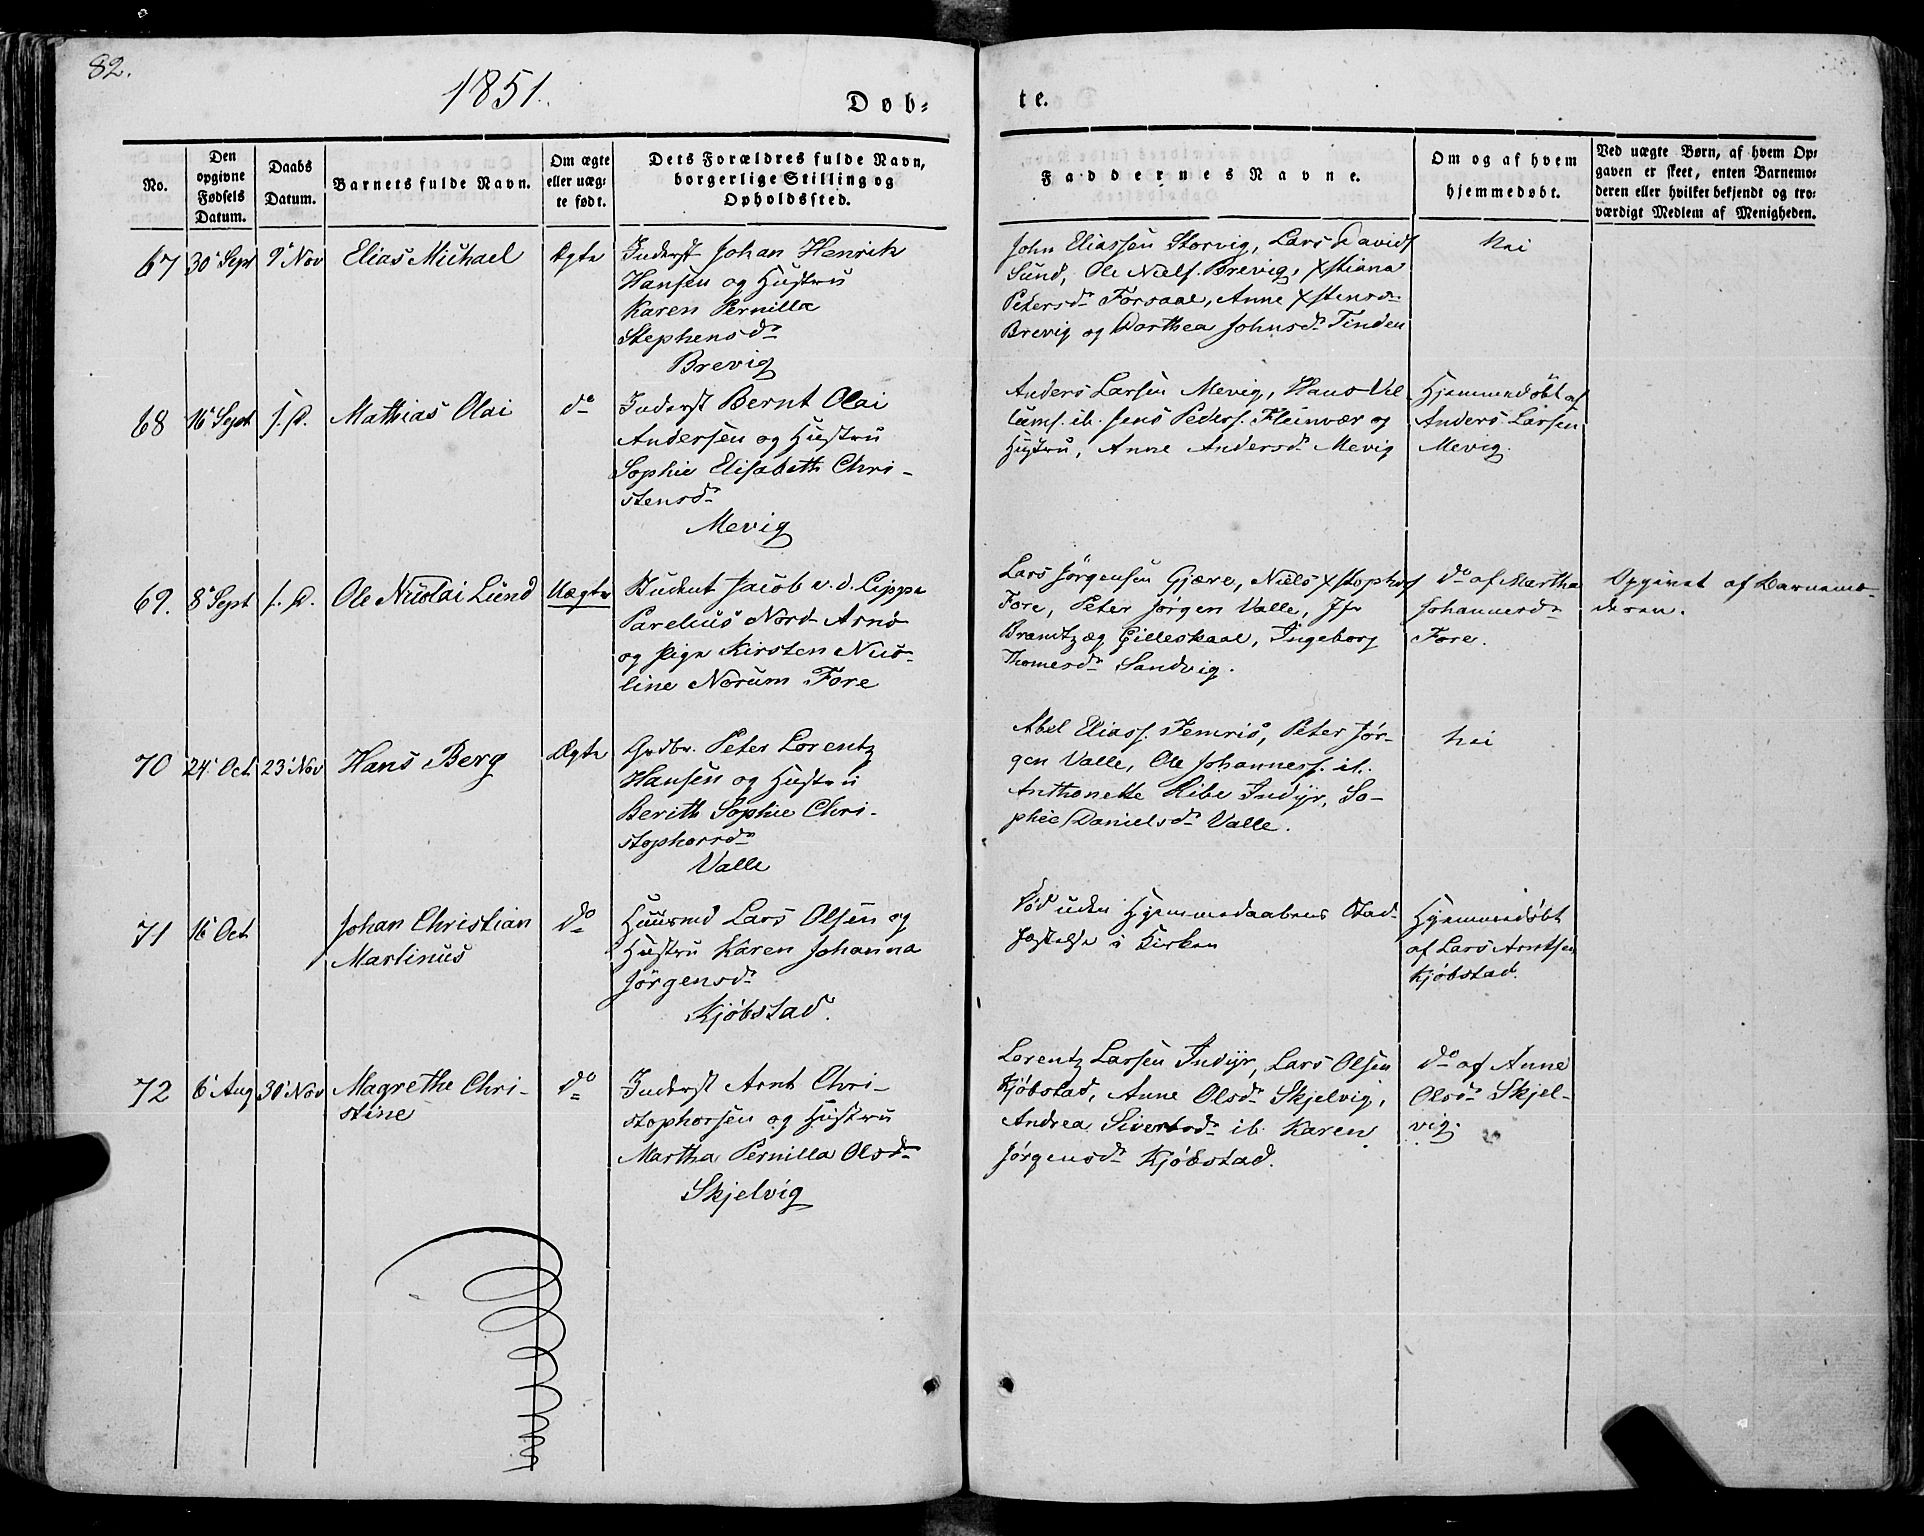 82.
1851.
Døb-
te.
No.
Den
opgivne
Fødsels
Datum.
Daabs
Datum.
Barnets fulde Navn.
Om ægte
eller uæg-
te født.
Dets Forældres fulde Navn,
borgerlige Stilling og
Opholdssted.
Faddernes Navne.
Om og af hvem
hjemmedøbt.
Ved uægte Børn, af hvem Op-
gaven er skeet, enten Barnemo-
deren eller hvilket bekjendt og tro-
værdigt Medlem af Menigheden.
67
30 Sept
9 Nov
Elias Michael
Ægte
Inderst Johan Henrik
Hansen og Hustru
Karen Pernilla
Stephensdr
Brevig
John Eliassen Storvig, Lars Davids
Sund, Ole Niels. Brevig, Xstiana
Petersdr Forsaae, Anne Xstensdr
Brevig og Dorthea Johnsdr Tinden
Nei
68
16 Sept
s. D.
Mathias Olai
do
Inderst Bernt Olai
Andersen og Hustru
Sophie Elisabeth Chri-
stensdr
Mevig
Anders Larsen Mevig, Hans Vil-
lums. ib. Jens Peders. Fleinvær og
Hustru, Anne Andersdr Mevig
Hjemmedøbt af
Anders Larsen
Mevig.
69.
8 Sept
s. D.
Ole Nicolai Lund
Uægte
Student Jacob v. d. Lippe
Parelius Nord Arnø
og Pige Kirsten Nico-
line Norum Fore
Lars Jørgensen Gjære, Niels Xstophers
Fore, Peter Jørgen Valle, Jfr
Brandtzæg Gilleskaal, Ingeborg
Thomesdr Sandvig.
do af Martha
Johannesdr
Fore.
Opgivet af Barnemo-
deren.
70
24 Oct
23 Nov
Hans Berg
Ægte
Grdbr. Peter Lorentz
Hansen og Hustru
Berith Sophie Chri-
stophersdr
Valle
Abel Eliass. Femris, Peter Jør-
gen Valle, Ole Johanness. ib.
Anthonette Hibe Indyr, So-
phie Danielsdr Valle.
Nei
71
16 Oct
Johan Christian
Martinus
do
Huusmd Lars Olsen og
Hustru Karen Johanna
Jørgensdr
Kjøbstad.
Død uden Hjemmedaabens Stad-
fæstelse i Kirken
Hjemmedøbt
af Lars Arntsen
Kjøbstad.
72
6 Aug
30 Nov
Magrethe Chri-
stine
do
Inderst Arnt Chri-
stophersen og Hustru
Martha Pernilla Olsdr
Skjelvig
Lorentz Larsen Indyr, Lars Olsen
Kjøbstad, Anne Olsdr Skjelvig,
Andrea Sivertsdr ib. Karen
Jørgensdr Kjøbstad.
do af Anne
Olsdr Skjel-
vig.